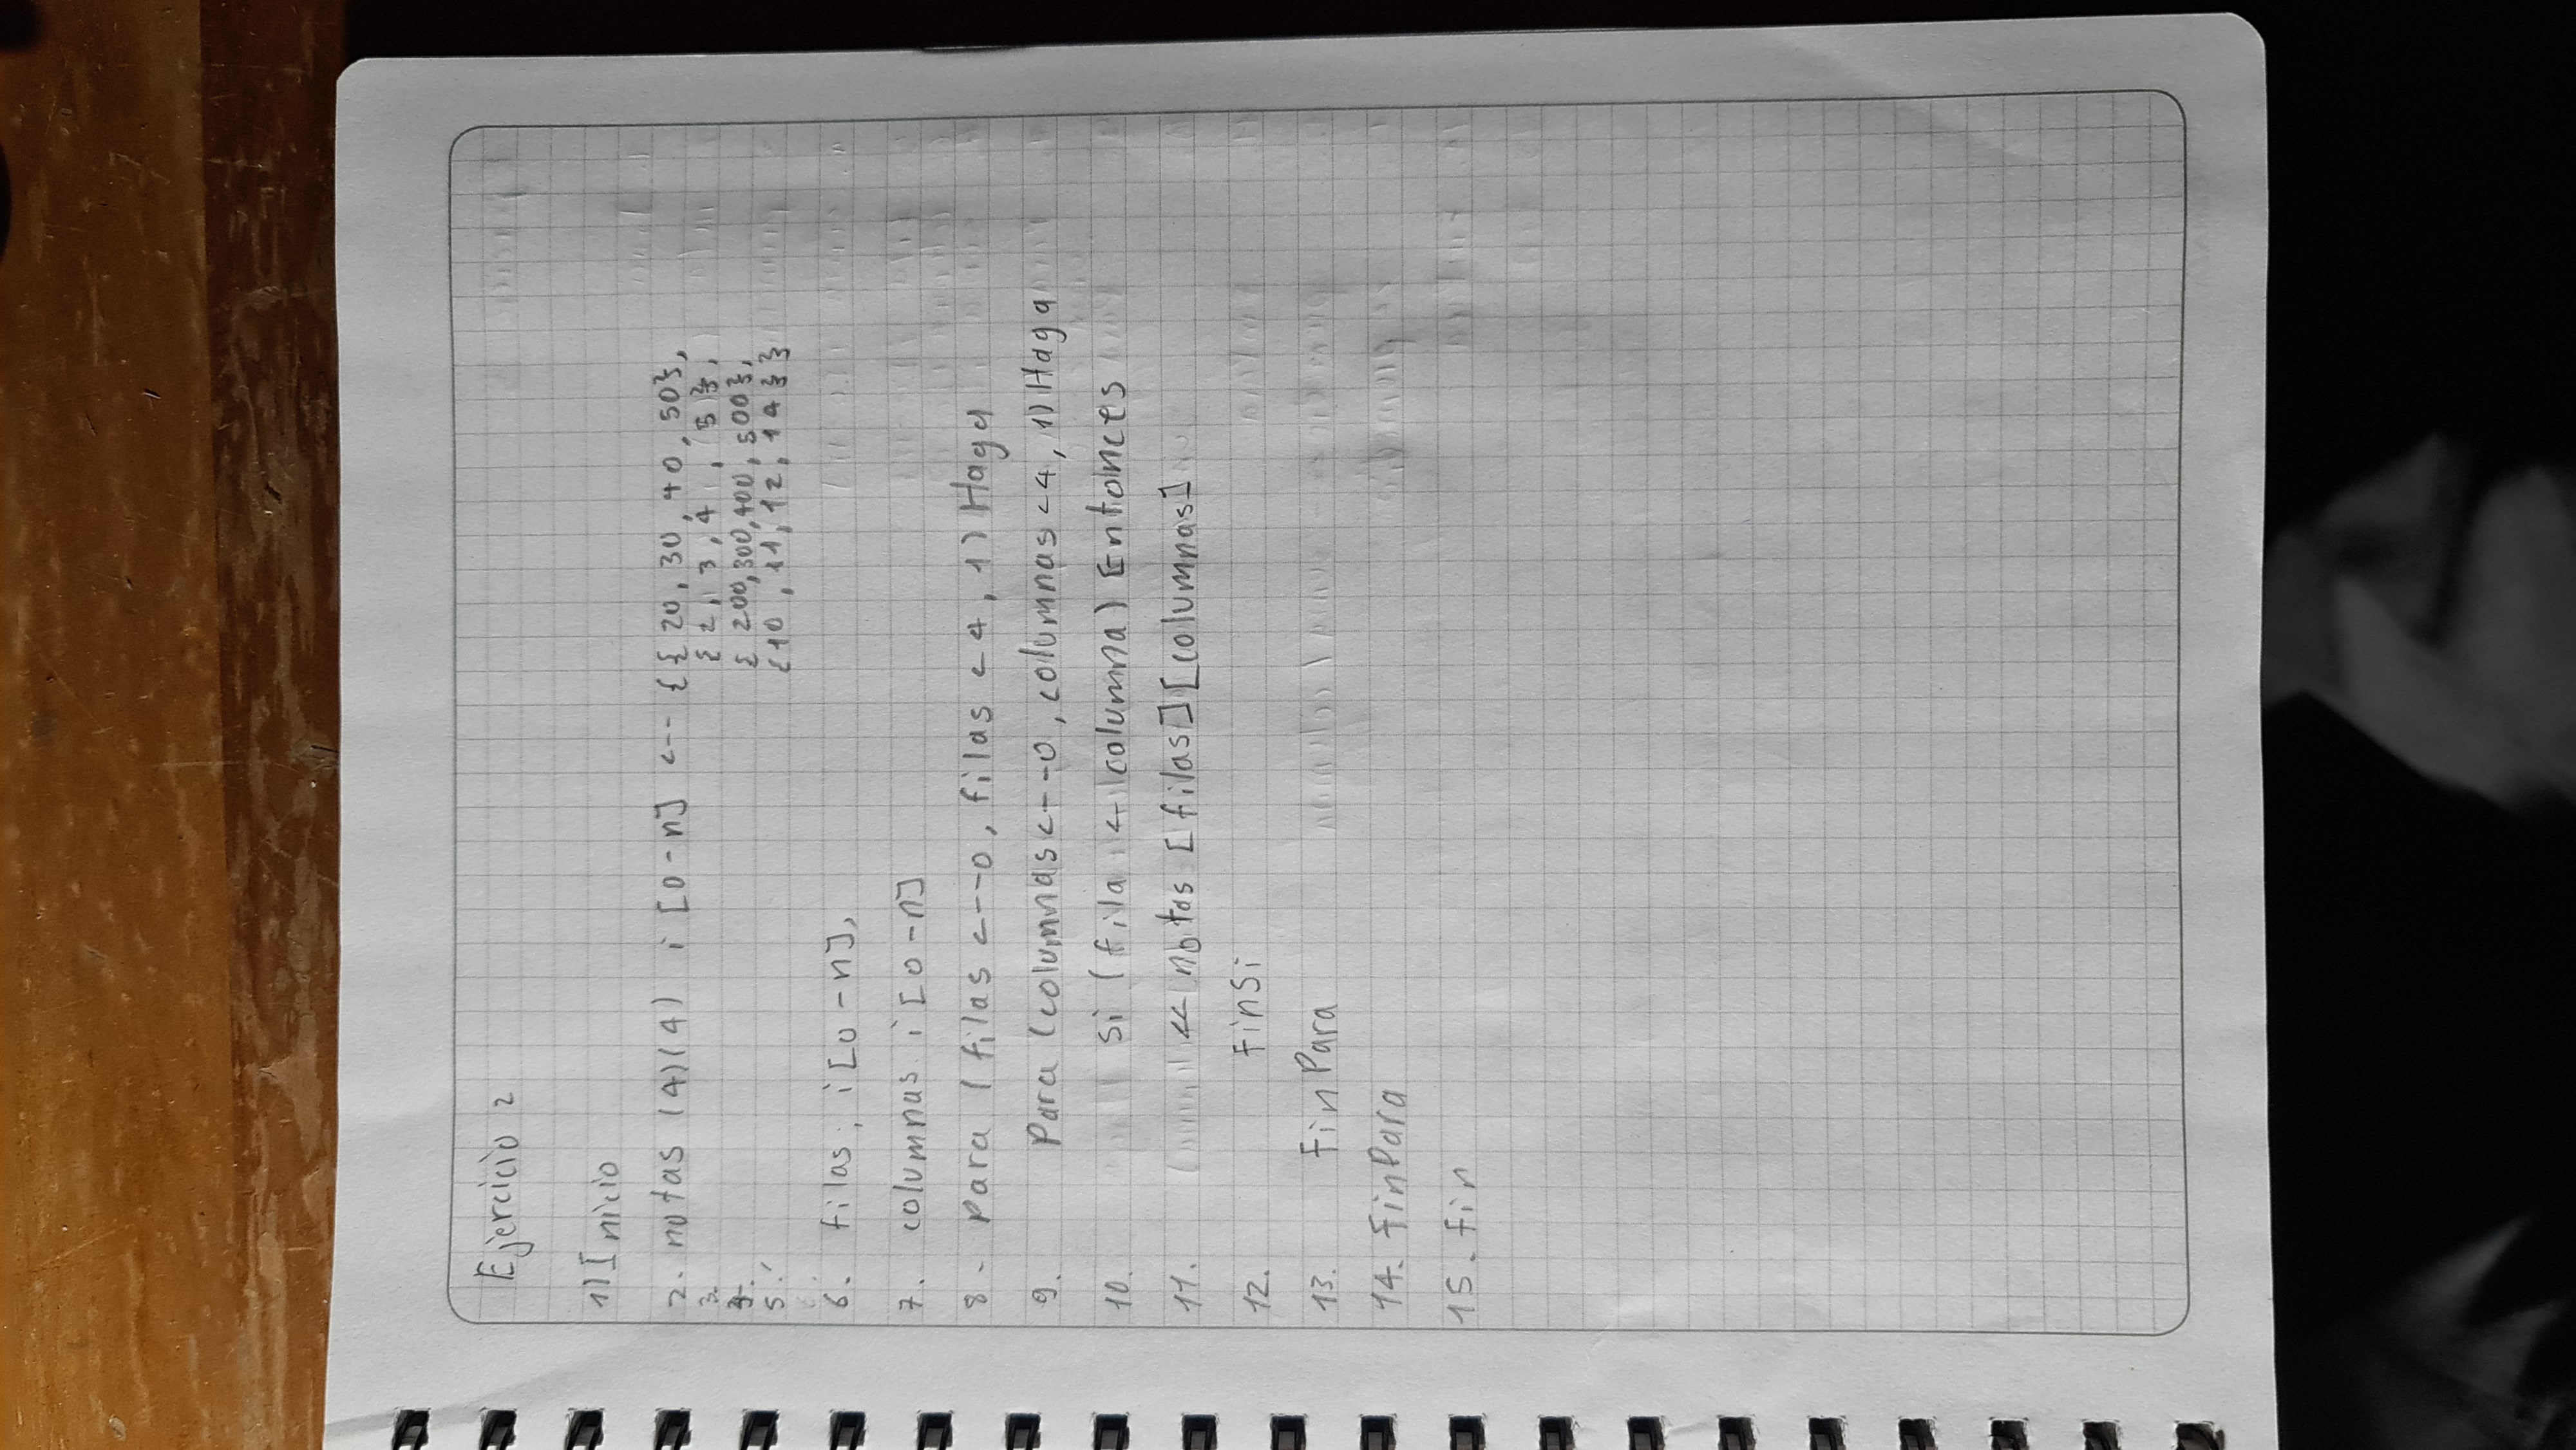 Ejercicio 2
1) Inicio
2. notas (4)(4) i [0-n] <-- {{20, 30, 40, 50},
3. {2, 3, 4, 5},
4. {200,300,400, 500},
5. {10, 11, 12, 14}}
6. filas, i[0-n],
7. columnas i [0-n]
8. Para (filas <--0, filas <4, 1) Haga
9. Para (columnas<--0, columnas <4, 1) Haga
10. Si (fila < columna) Entonces
11. << notas [filas][columnas]
12. FinSi
13. Fin Para
14. FinPara
15. Fin